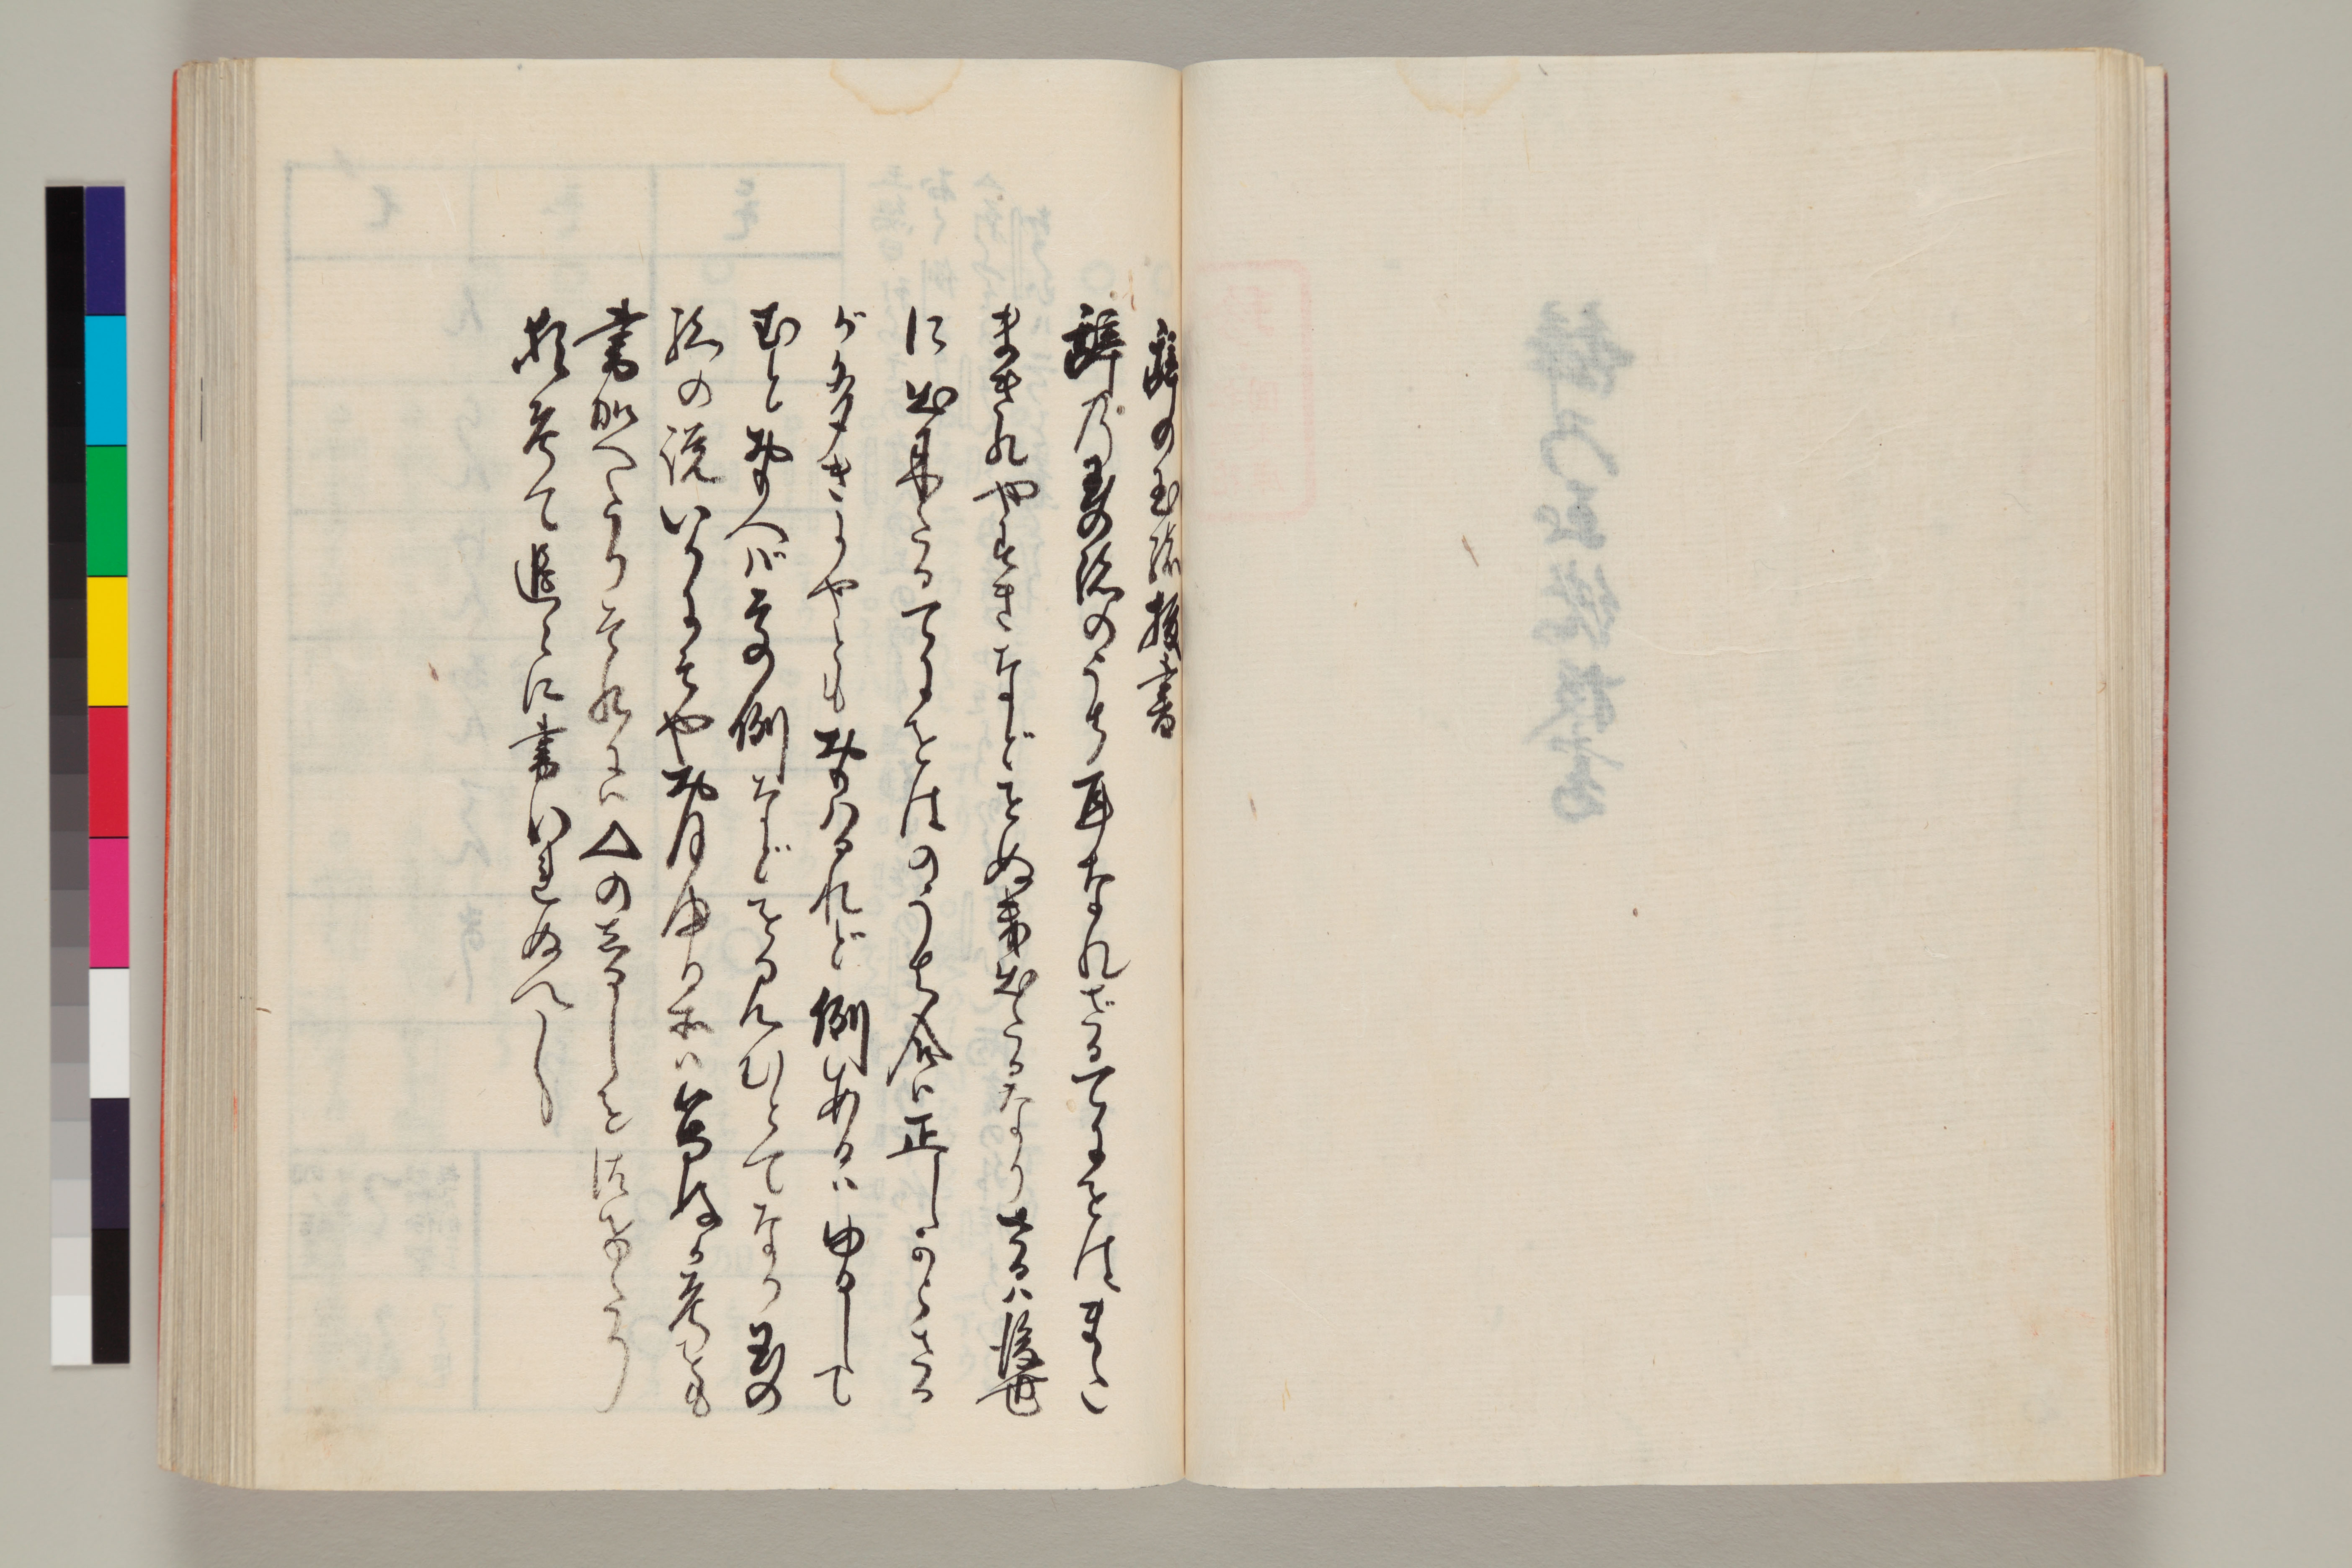 辞の玉緒抜書
辞乃玉の緒のうち耳なれざるてにをは まゝこ
まきれやすきなどをぬき出たるなり さるハ後世
に出来たるてにをはのうち今ハ正しからさる
が多きにやともおもハるれど例あるハゆるして
むとおもへバその例などをるんひとてなり 玉の
緒の説いかにそやおほゆるふしハ萬がか考をも
書加へたりそれにハ△のしるしをはさミたり
猶考て追々に書いれぬへし